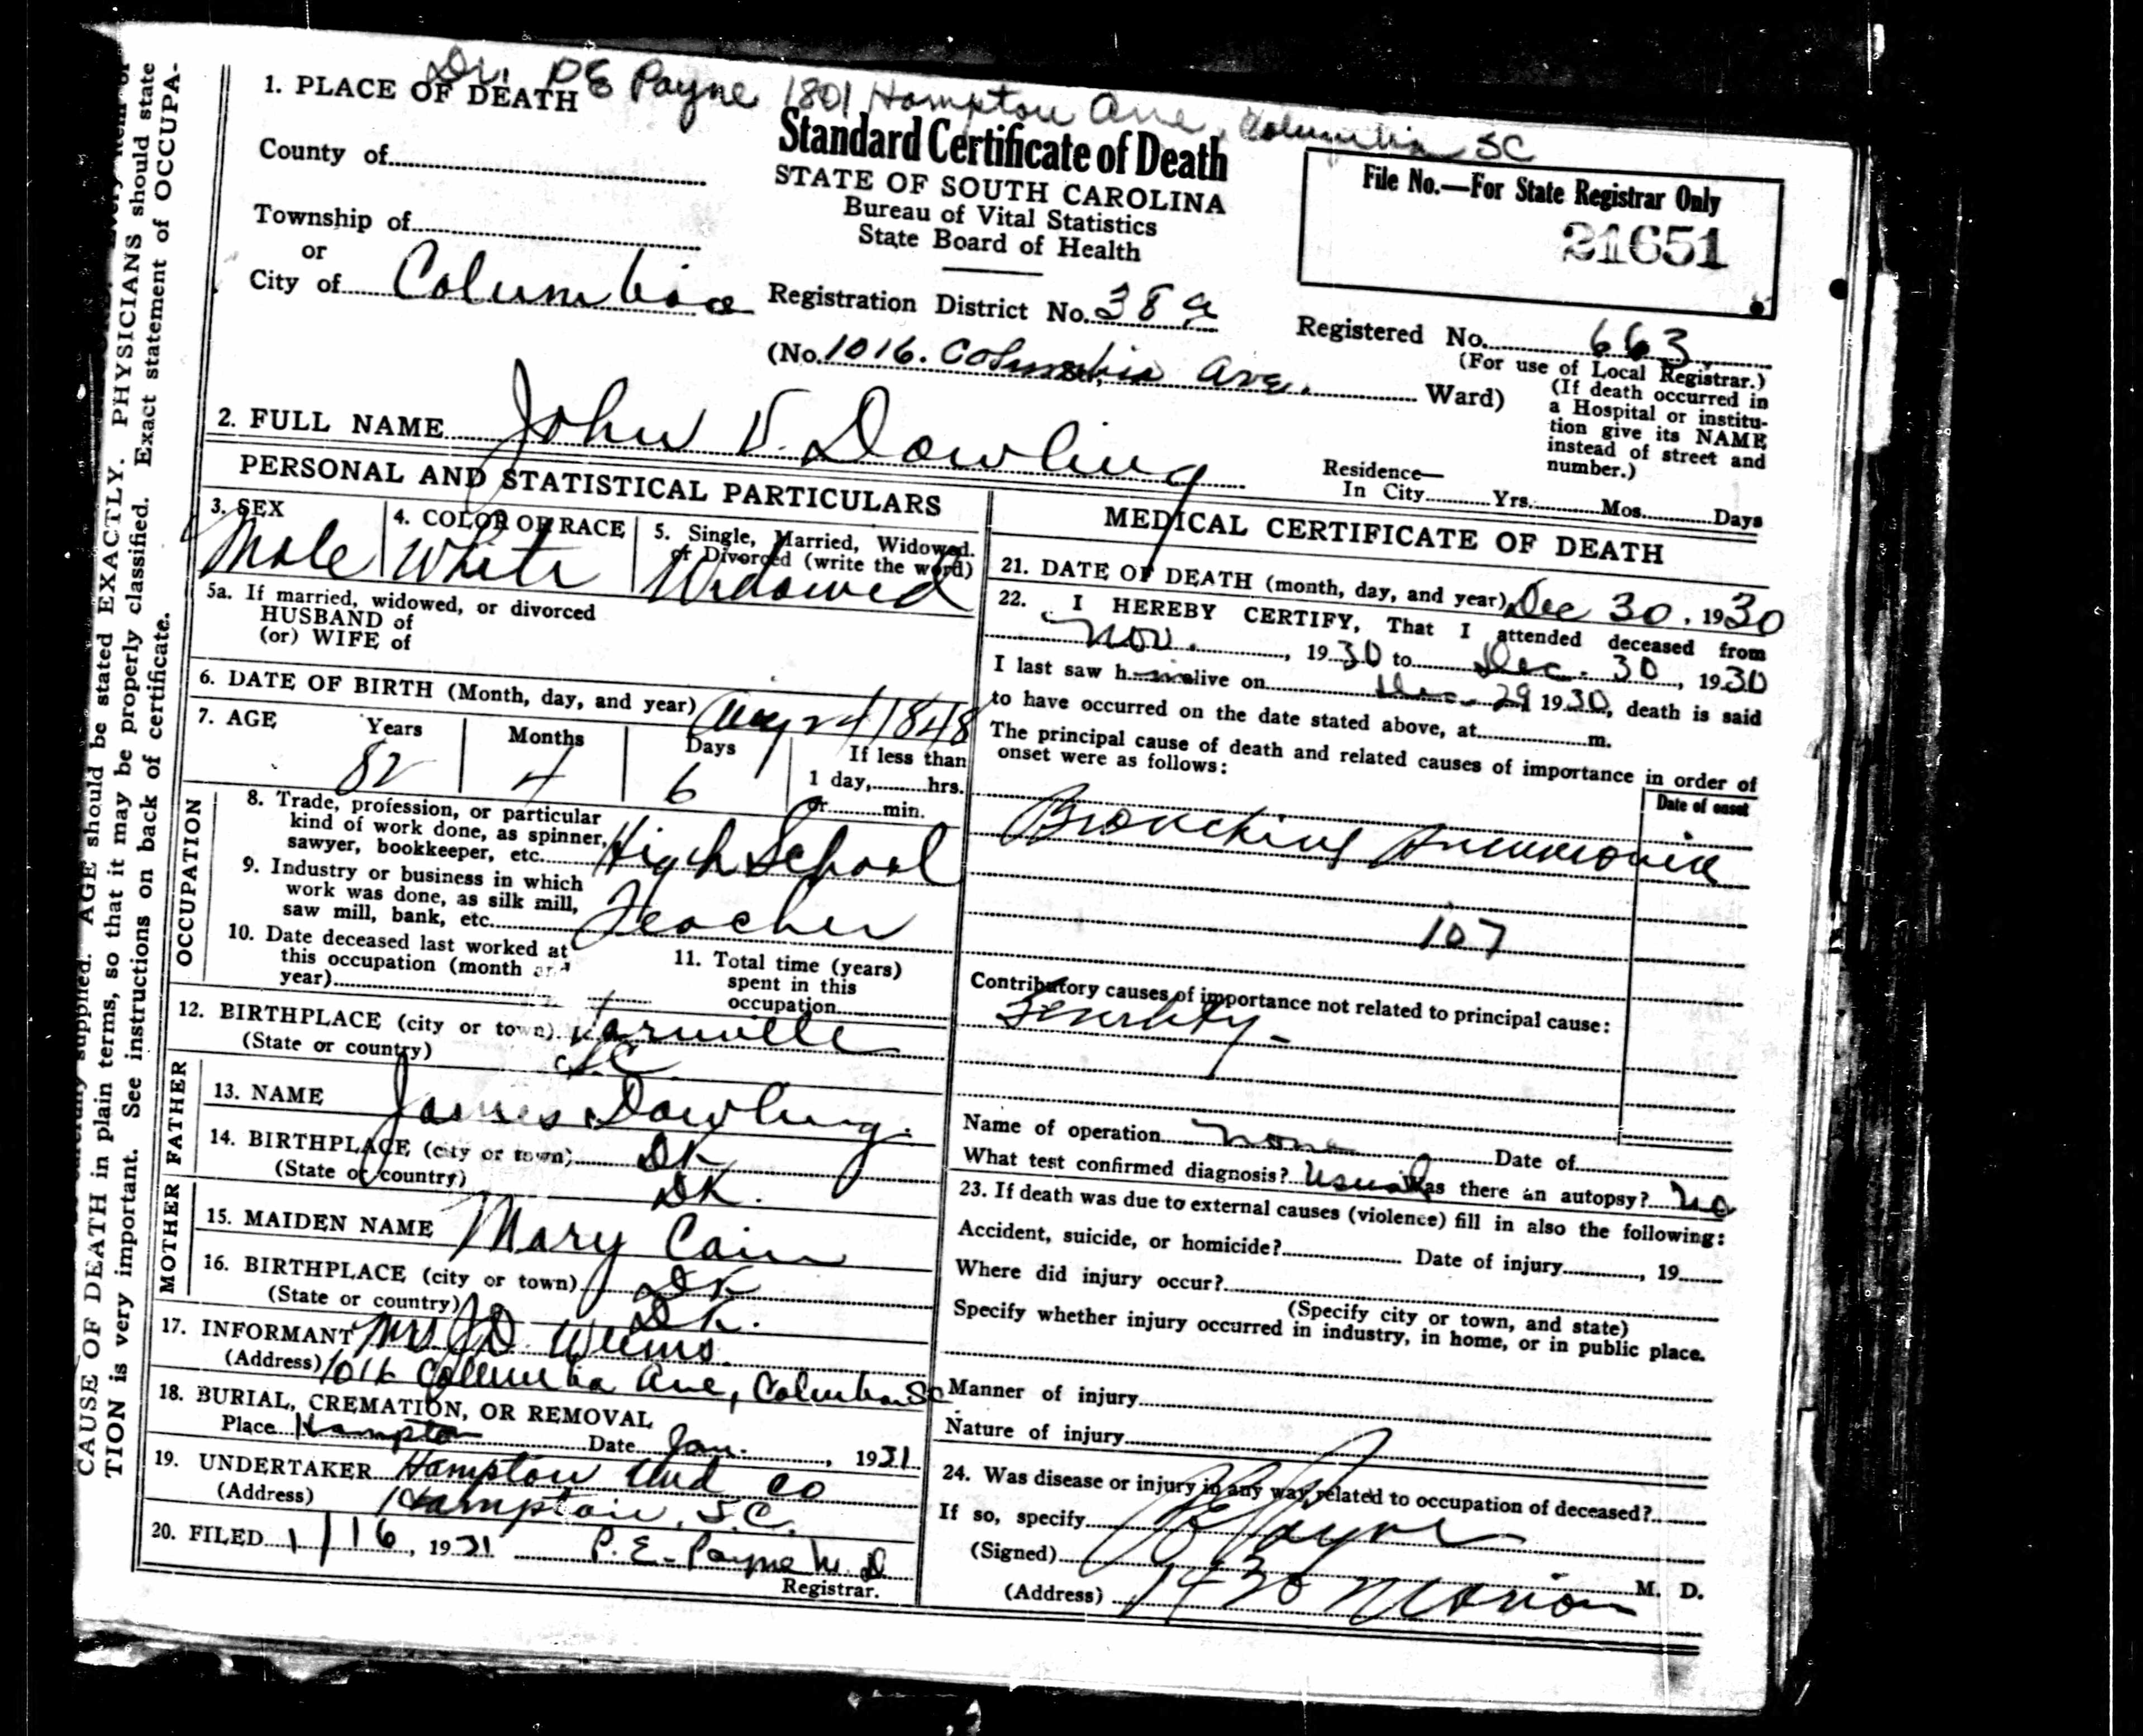 Dr. PE Payne 1801 Hampton Ave, Columbia SC
1. PLACE OF DEATH
Standard Certificate of Death
STATE OF SOUTH CAROLINA
Bureau of Vital Statistics
State Board of Health
File No.—For State Registrar Only
21651
County of
Township of
or
City of Columbia
Registration District No. 38a
Registered No. 663
(For use of Local Registrar.)
(No. 1016. Columbia Ave. Ward)
(If death occurred in
a Hospital or institu-
tion give its NAME
instead of street and
number.)
2. FULL NAME John V. Dowling
Residence—
In City Yrs. Mos. Days
PERSONAL AND STATISTICAL PARTICULARS
3. SEX
Male
4. COLOR OR RACE
White
5. Single, Married, Widowed.
or Divorced (write the word)
Widowed
5a. If married, widowed, or divorced
HUSBAND of
(or) WIFE of
6. DATE OF BIRTH (Month, day, and year) Aug 24 1848
7. AGE
Years
Months
Days
If less than
82
4
6
1 day, hrs.
or min.
OCCUPATION
8. Trade, profession, or particular
kind of work done, as spinner,
sawyer, bookkeeper, etc. High School
9. Industry or business in which
work was done, as silk mill,
saw mill, bank, etc. Teacher
10. Date deceased last worked at
this occupation (month and
year)
11. Total time (years)
spent in this
occupation
12. BIRTHPLACE (city or town) Varnville
(State or country) SC
FATHER
13. NAME James Dowling.
14. BIRTHPLACE (city or town) DK
(State or country) DK.
MOTHER
15. MAIDEN NAME Mary Cain
16. BIRTHPLACE (city or town) DK
(State or country) DK.
17. INFORMANT Mrs JD Weems.
(Address) 1016 Columbia Ave, Columbia SC
18. BURIAL, CREMATION, OR REMOVAL
Place Hampton Date Jan. , 1931
19. UNDERTAKER Hampton Und Co
(Address) Hampton, S.C.
20. FILED 1/16, 1931 P. E. Payne M.D
Registrar.
MEDICAL CERTIFICATE OF DEATH
21. DATE OF DEATH (month, day, and year) Dec 30, 1930
22. I HEREBY CERTIFY, That I attended deceased from
Nov. , 1930 to Dec. 30, 1930
I last saw him alive on Dec. 29 1930, death is said
to have occurred on the date stated above, at m.
The principal cause of death and related causes of importance in order of
onset were as follows:
Date of onset
Bronchial Pneumonia
107
Contributory causes of importance not related to principal cause:
Senility -
Name of operation none Date of
What test confirmed diagnosis? Usual Was there an autopsy? no
23. If death was due to external causes (violence) fill in also the following:
Accident, suicide, or homicide? Date of injury , 19
Where did injury occur?
(Specify city or town, and state)
Specify whether injury occurred in industry, in home, or in public place.
Manner of injury
Nature of injury
24. Was disease or injury in any way related to occupation of deceased?
If so, specify
(Signed) PE Payne M. D.
(Address) 1430 Marion
CAUSE OF DEATH in plain terms, so that it may be properly classified. Exact statement of OCCUPA-
TION is very important. See instructions on back of certificate.
supplied. AGE should be stated EXACTLY. PHYSICIANS should state